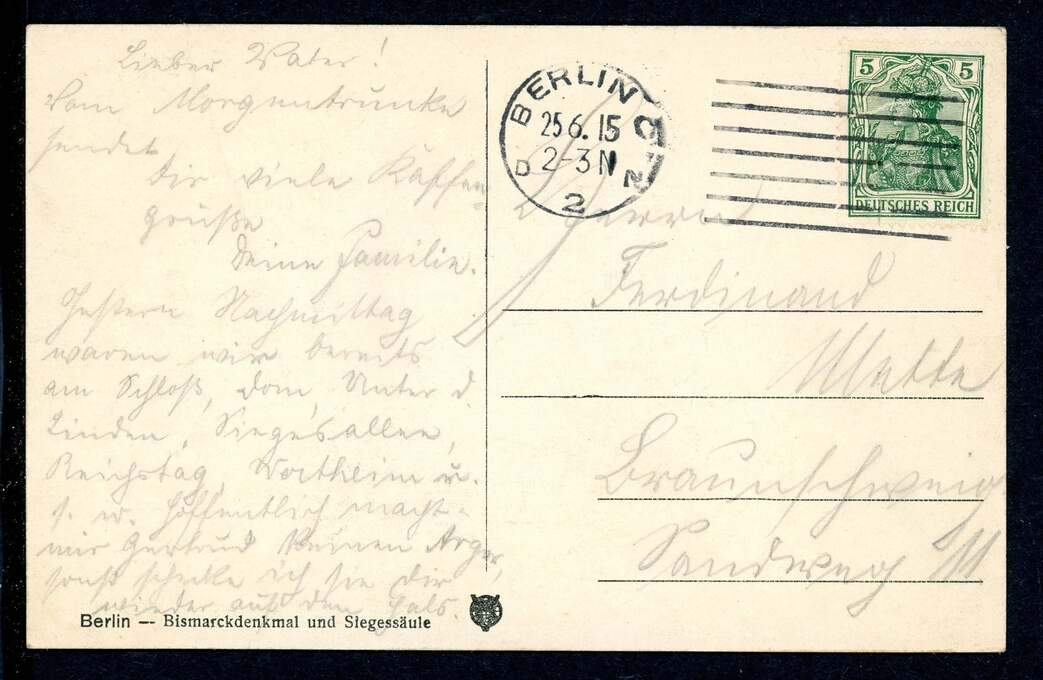 Lieber Vater!
Vom Morgentrunke
sendet
Dir viele Kaffee-
grüße
Deine Familie.
Gestern Nachmittag
waren wir bereits
am Schloß, Dom, Unter d.
Linden, Siegesallee,
Reichstag, Wertheim u.
s. w. Hoffentlich macht
mir Gertrud keinen Ärger,
sonst schicke ich sie Dir
wieder auf den Hals.
Berlin — Bismarckdenkmal und Siegessäule
BERLIN C
25.6.15
2-3N
D 2 N
5 5
DEUTSCHES REICH
Herrn
Ferdinand
Braunschweig
Sandweg